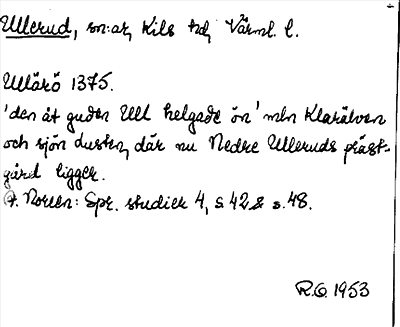 Ullerud, sn:ar, Kils hd, Värml. l.
Ullärö 1375.
'den åt guden Ull helgade ön' mln Klarälven
och sjön Dusten, där nu Nedre Ulleruds präst-
gård ligger.
A. Noreen: Spr. studier 4, s. 42 & s. 48.
R.O. 1953